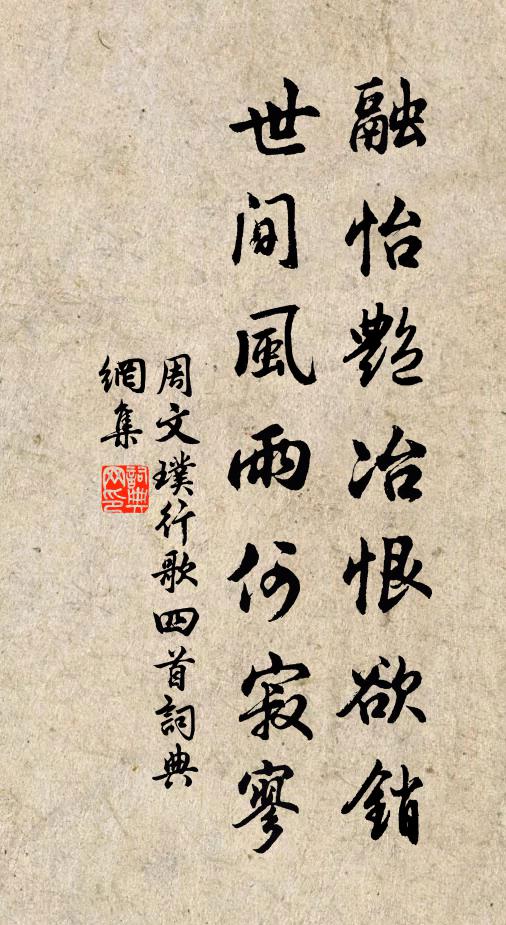 融怡艷冶恨欲銷
世間風雨何寂寥
周文璞行歌四首詞典
網集
詞典網印